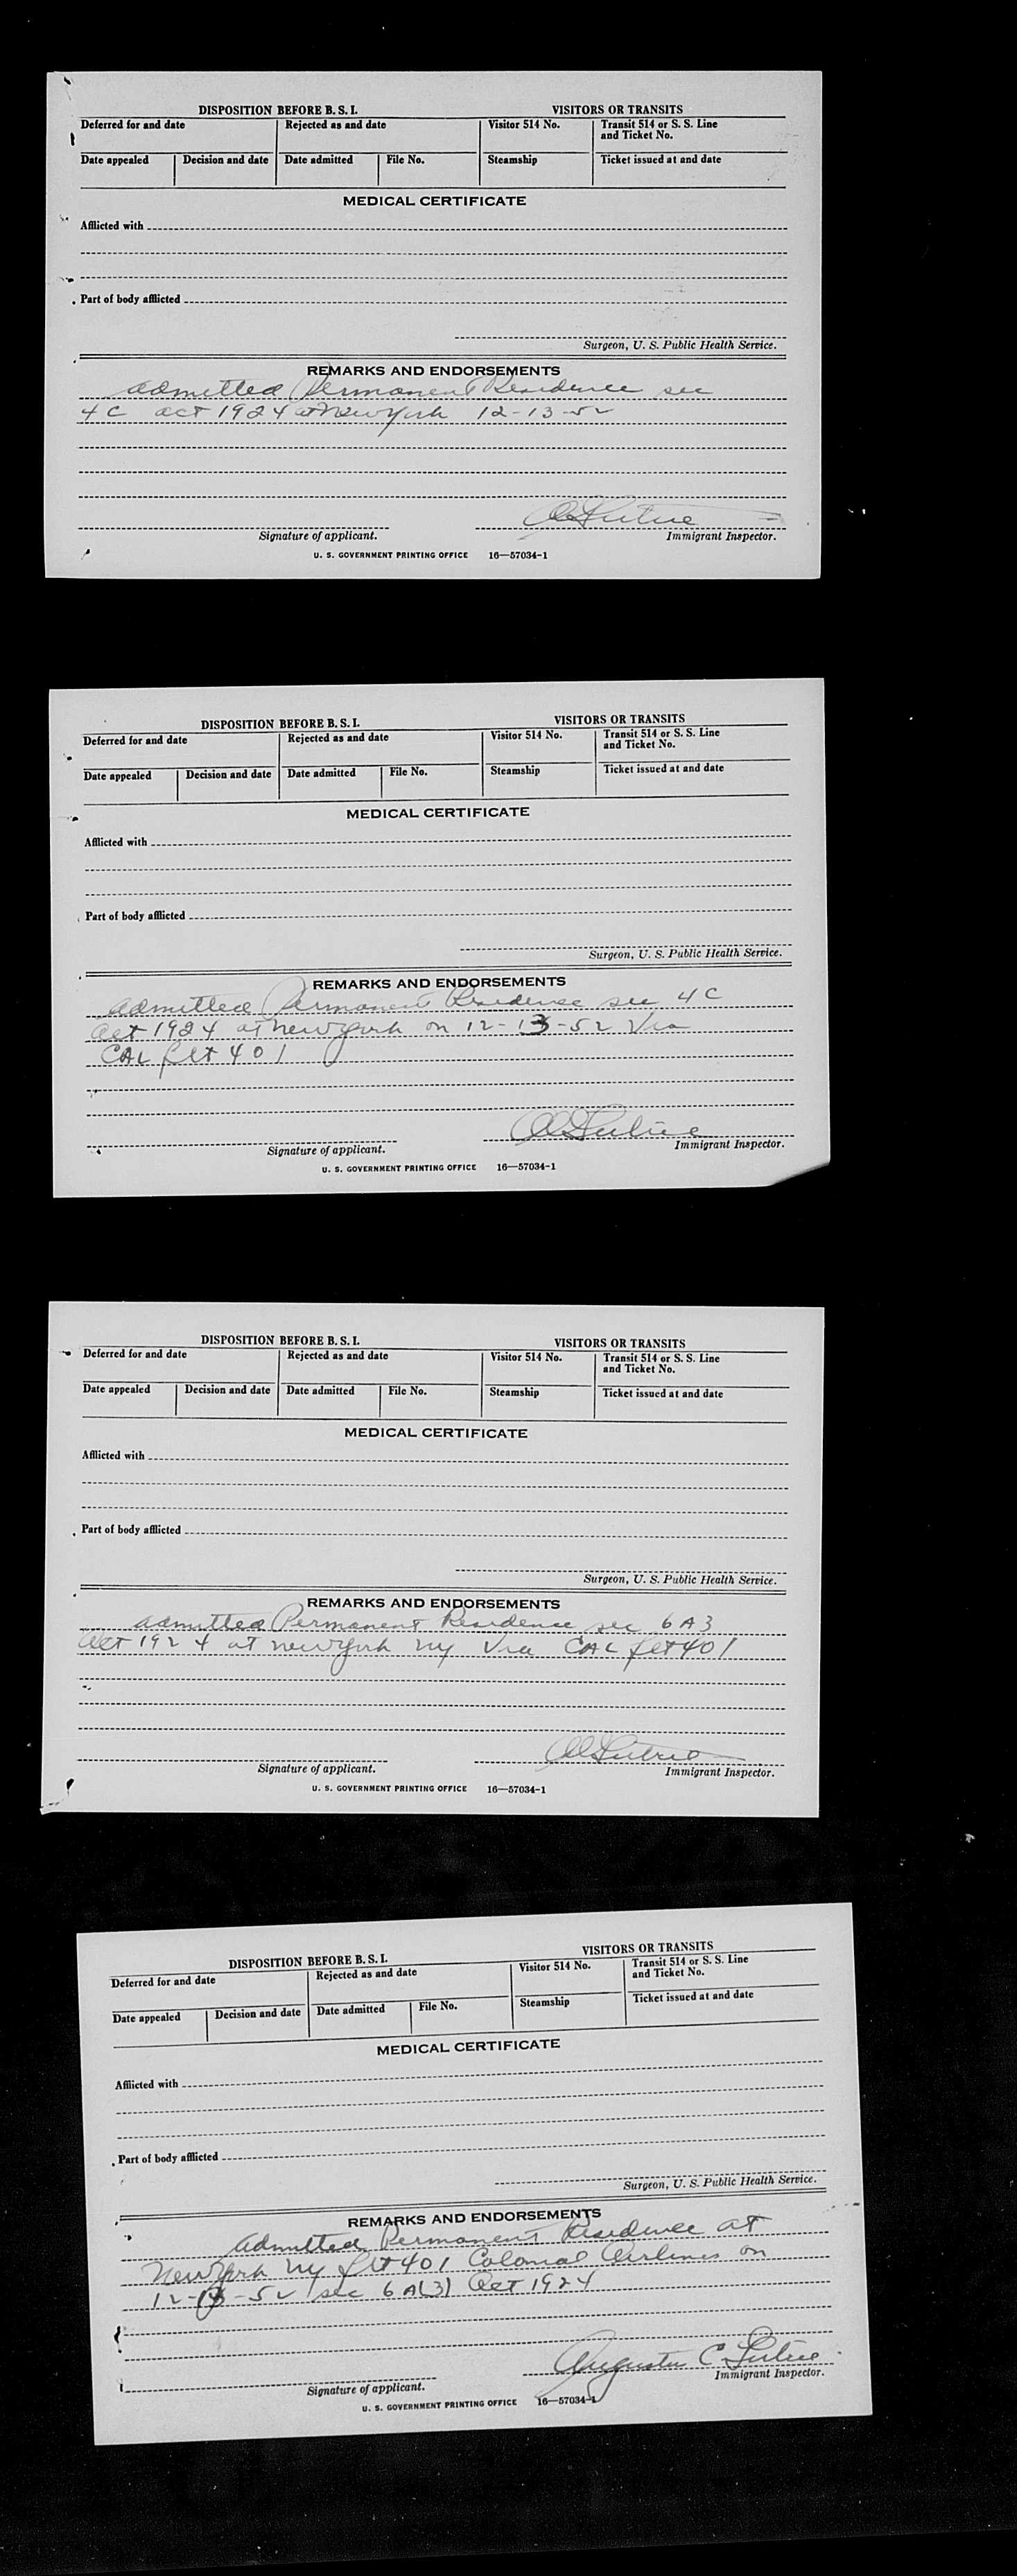 DISPOSITION BEFORE B. S. I. VISITORS OR TRANSITS
Deferred for and date Rejected as and date Visitor 514 No. Transit 514 or S. S. Line and Ticket No.
Date appealed Decision and date Date admitted File No. Steamship Ticket issued at and date
MEDICAL CERTIFICATE
Afflicted with
Part of body afflicted
Surgeon, U. S. Public Health Service.
REMARKS AND ENDORSEMENTS
admitted Permanent Residence sec
4C act 1924 at New York 12-13-52
Signature of applicant. Immigrant Inspector.
U. S. GOVERNMENT PRINTING OFFICE 16—57034-1
DISPOSITION BEFORE B. S. I. VISITORS OR TRANSITS
Deferred for and date Rejected as and date Visitor 514 No. Transit 514 or S. S. Line and Ticket No.
Date appealed Decision and date Date admitted File No. Steamship Ticket issued at and date
MEDICAL CERTIFICATE
Afflicted with
Part of body afflicted
Surgeon, U. S. Public Health Service.
REMARKS AND ENDORSEMENTS
admitted Permanent Residence sec 4C
Act 1924 at New York on 12-13-52 Via
CAL flt 401
Signature of applicant. Immigrant Inspector.
U. S. GOVERNMENT PRINTING OFFICE 16—57034-1
DISPOSITION BEFORE B. S. I. VISITORS OR TRANSITS
Deferred for and date Rejected as and date Visitor 514 No. Transit 514 or S. S. Line and Ticket No.
Date appealed Decision and date Date admitted File No. Steamship Ticket issued at and date
MEDICAL CERTIFICATE
Afflicted with
Part of body afflicted
Surgeon, U. S. Public Health Service.
REMARKS AND ENDORSEMENTS
admitted Permanent Residence sec 6A3
Act 1924 at New York NY Via CAL flt 401
Signature of applicant. Immigrant Inspector.
U. S. GOVERNMENT PRINTING OFFICE 16—57034-1
DISPOSITION BEFORE B. S. I. VISITORS OR TRANSITS
Deferred for and date Rejected as and date Visitor 514 No. Transit 514 or S. S. Line and Ticket No.
Date appealed Decision and date Date admitted File No. Steamship Ticket issued at and date
MEDICAL CERTIFICATE
Afflicted with
Part of body afflicted
Surgeon, U. S. Public Health Service.
REMARKS AND ENDORSEMENTS
Admitted Permanent Residence at
New York NY flt 401 Colonial Airlines on
12-13-52 sec 6A(3) Act 1924
Signature of applicant. Immigrant Inspector.
U. S. GOVERNMENT PRINTING OFFICE 16—57034-1